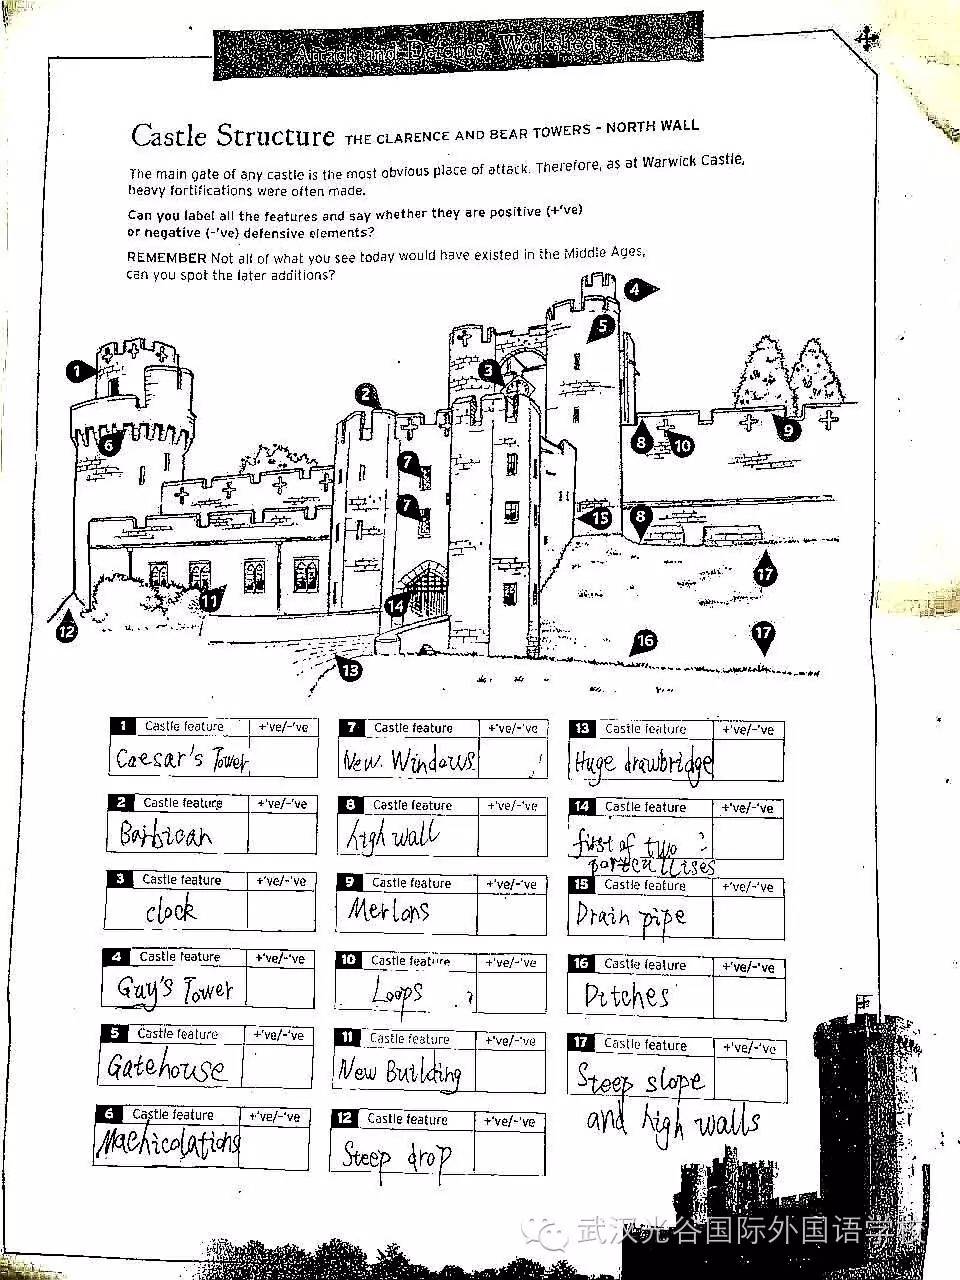 Attack and Defence Worksheet 5
Castle Structure THE CLARENCE AND BEAR TOWERS - NORTH WALL
The main gate of any castle is the most obvious place of attack. Therefore, as at Warwick Castle,
heavy fortifications were often made.
Can you label all the features and say whether they are positive (+'ve)
or negative (-'ve) defensive elements?
REMEMBER Not all of what you see today would have existed in the Middle Ages,
can you spot the later additions?
4
5
1
3
2
9
6
8
10
7
7
15
8
17
11
14
12
16
17
13
1 Castle feature +'ve/-'ve
Caesar's Tower
2 Castle feature +'ve/-'ve
Barbican
3 Castle feature +'ve/-'ve
clock
4 Castle feature +'ve/-'ve
Guy's Tower
5 Castle feature +'ve/-'ve
Gatehouse
6 Castle feature +'ve/-'ve
Machicolations
7 Castle feature +'ve/-'ve
New Windows
8 Castle feature +'ve/-'ve
high wall
9 Castle feature +'ve/-'ve
Merlons
10 Castle feature +'ve/-'ve
Loops ?
11 Castle feature +'ve/-'ve
New Building
12 Castle feature +'ve/-'ve
Steep drop
13 Castle feature +'ve/-'ve
Huge drawbridge
14 Castle feature +'ve/-'ve
first of two ?
portcullises
15 Castle feature +'ve/-'ve
Drain pipe
16 Castle feature +'ve/-'ve
Ditches
17 Castle feature +'ve/-'ve
Steep slope
and high walls
武汉光谷国际外国语学校